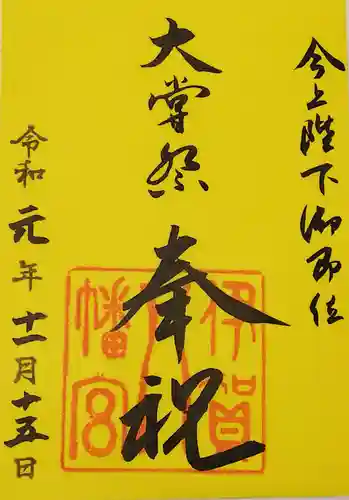 今上陛下御即位
大嘗祭 奉祝
令和元年十一月十五日
伊賀八幡宮